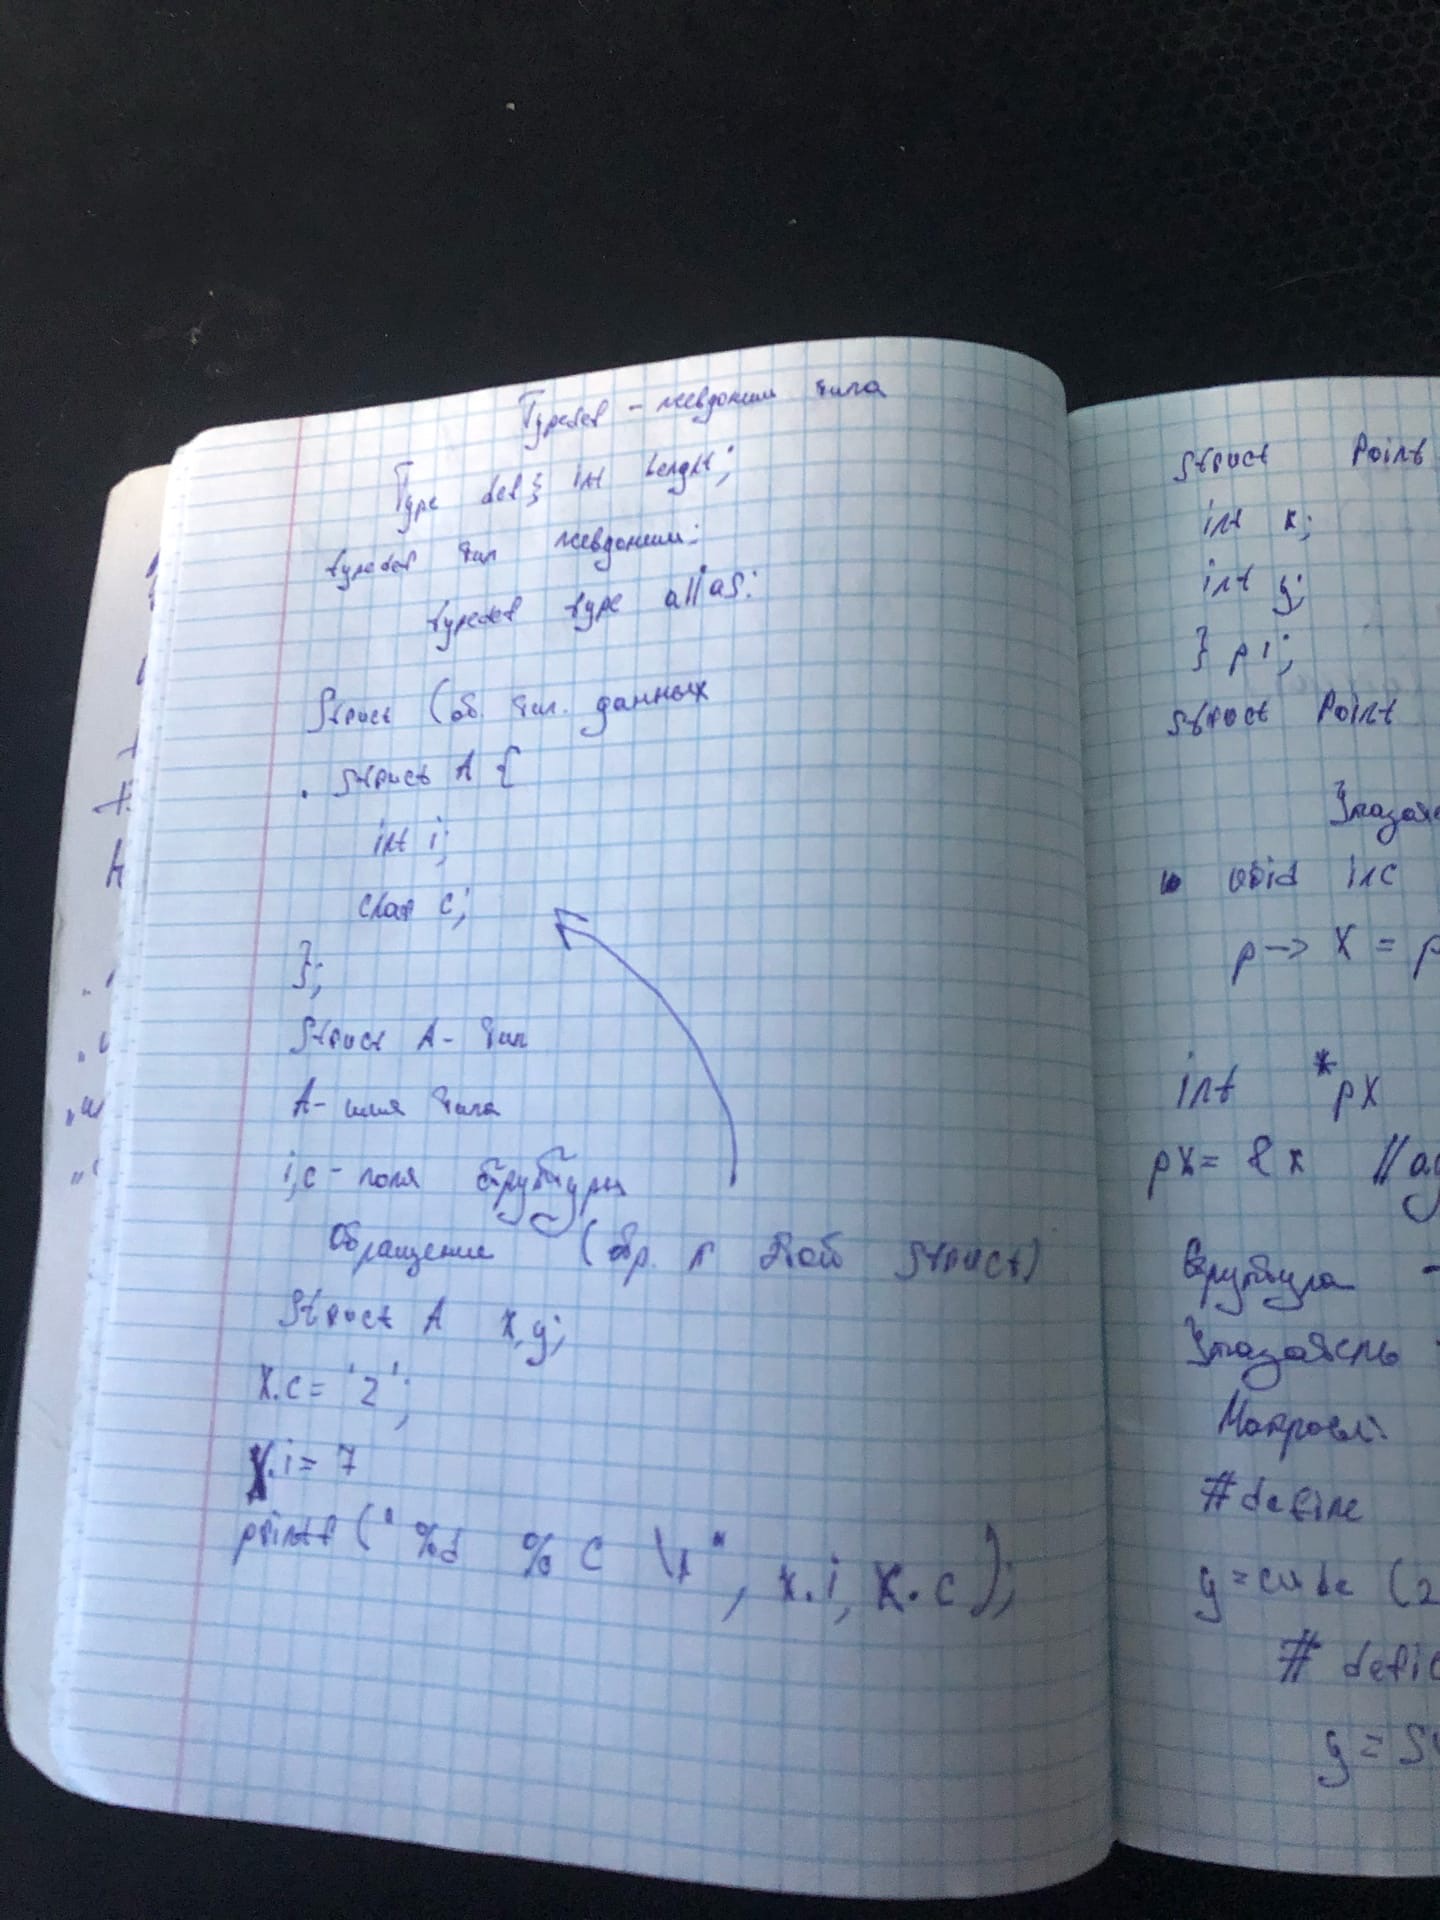 Typedef - псевдоним типа
Type def } int Lenght;
typedef тип псевдоним:
typedef type alias:
Struct (об. тип. данных
. struct A {
int i;
char c;
};
Struct A - тип
A - имя типа
i, c - поля структуры
Обращение (обр. к этой struct)
Struct A x, y;
x.c = '2';
x.i = 7
printf (" %d %c \n", x.i, x.c);
struct Point
int x;
int y;
} p1;
struct Point
void inc
p -> x = p
int *px
px = & x //
Структура -
Указатель
Макросы:
#define
y = cube (2
#
y =